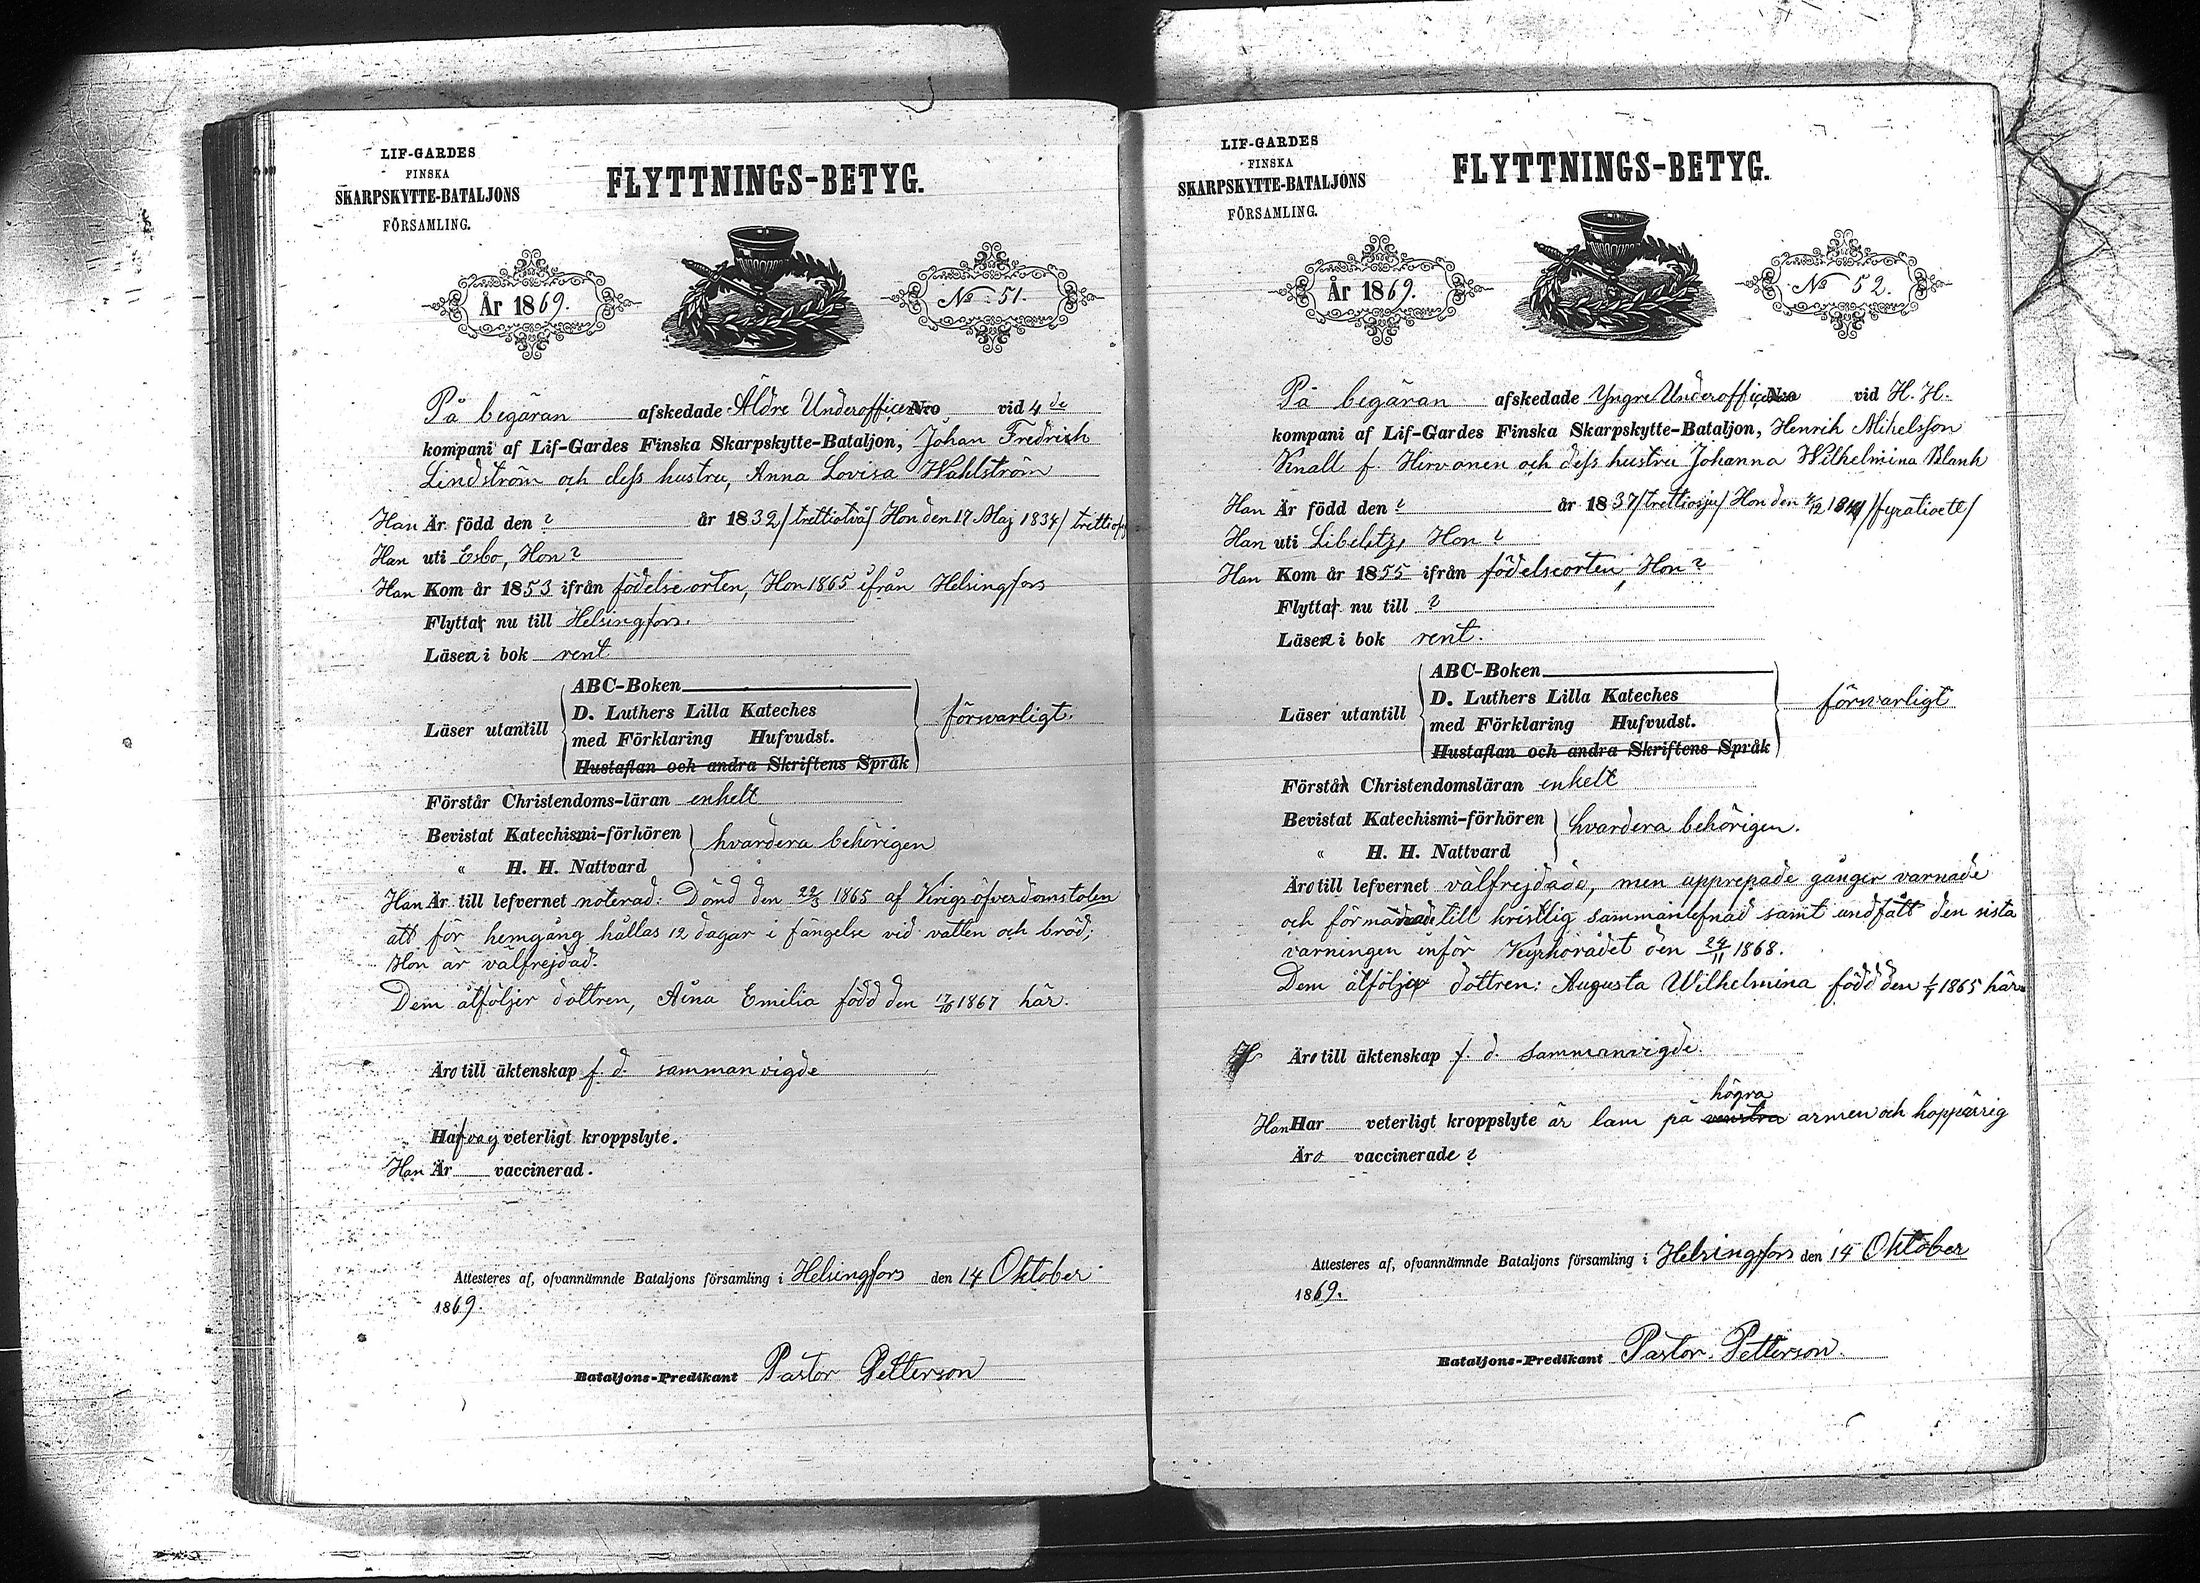 LIF-GARDES
FINSKA
SKARPSKYTTE-BATALJONS
FÖRSAMLING.
FLYTTNINGS-BETYG.
År 1869.
No 51.
På begäran afskedade Äldre Underofficeren Nro vid 4de
kompani af Lif-Gardes Finska Skarpskytte-Bataljon, Johan Fredrich
Lindström och dess hustru, Anna Lovisa Wahlström
Han Är född den ? år 1832/trettiotvå/ Hon den 17 Maj 1834/
Han uti Esbo, Hon ?
Han Kom år 1853 ifrån födelseorten, Hon 1865 ifrån Helsingfors
Flytta nu till Helsingfors.
Läsa i bok rent
Läser utantill
ABC-Boken
D. Luthers Lilla Kateches
med Förklaring Hufvudst.
Hustaflan och andra Skriftens Språk
försvarligt.
Förstår Christendoms-läran enkelt
Bevistat Katechismi-förhören
" H. H. Nattvard
hvardera behörigen
Han Är till lefvernet noterad: Dömd den 22/3 1865 af Krigsöfverdomstolen
att för hemgång hållas 12 dagar i fängelse vid vatten och bröd;
Hon är välfrejdad.
Dem åtföljer dottren, Aina Emilia född den 17/10 1867 här.
Äro till äktenskap f. d. sammanvigde
Haf veterligt kroppslyte.
Han Är vaccinerad.
Attesteres af, ofvannämnde Bataljons församling i Helsingfors den 14 Oktober
1869.
Bataljons-Predikant Pastor Petterson
LIF-GARDES
FINSKA
SKARPSKYTTE-BATALJONS
FÖRSAMLING.
FLYTTNINGS-BETYG.
År 1869.
No 52.
På begäran afskedade Yngre Underofficeren vid H. H.
kompani af Lif-Gardes Finska Skarpskytte-Bataljon, Henrik Mikelsson
Knall f. Hirvonen och dess hustru Johanna Wilhelmina Blank
Han Är född den ? år 1837/trettiosju/ Hon den /fyratioett/
Han uti Libelitz, Hon ?
Han Kom år 1855 ifrån födelseorten, Hon ?
Flytta nu till ?
Läsa i bok rent.
Läser utantill
ABC-Boken
D. Luthers Lilla Kateches
med Förklaring Hufvudst.
Hustaflan och andra Skriftens Språk
försvarligt
Förstå Christendomsläran enkelt
Bevistat Katechismi-förhören
" H. H. Nattvard
hvardera behörigen.
Äro till lefvernet välfrejdade, men upprepade gånger varnade
och förmanade till kristlig sammanlefnad samt undfått den sista
varningen inför Kyrkorådet den 24/11 1868.
Dem åtföljer dottren: Augusta Wilhelmina född den 1865 här
Äro till äktenskap f. d. sammanvigde.
högra
Han Har veterligt kroppslyte är lam på venstra armen och koppärrig
Äro vaccinerade ?
Attesteres af, ofvannämnde Bataljons församling i Helsingfors den 14 Oktober
1869.
Bataljons-Predikant Pastor Petterson.